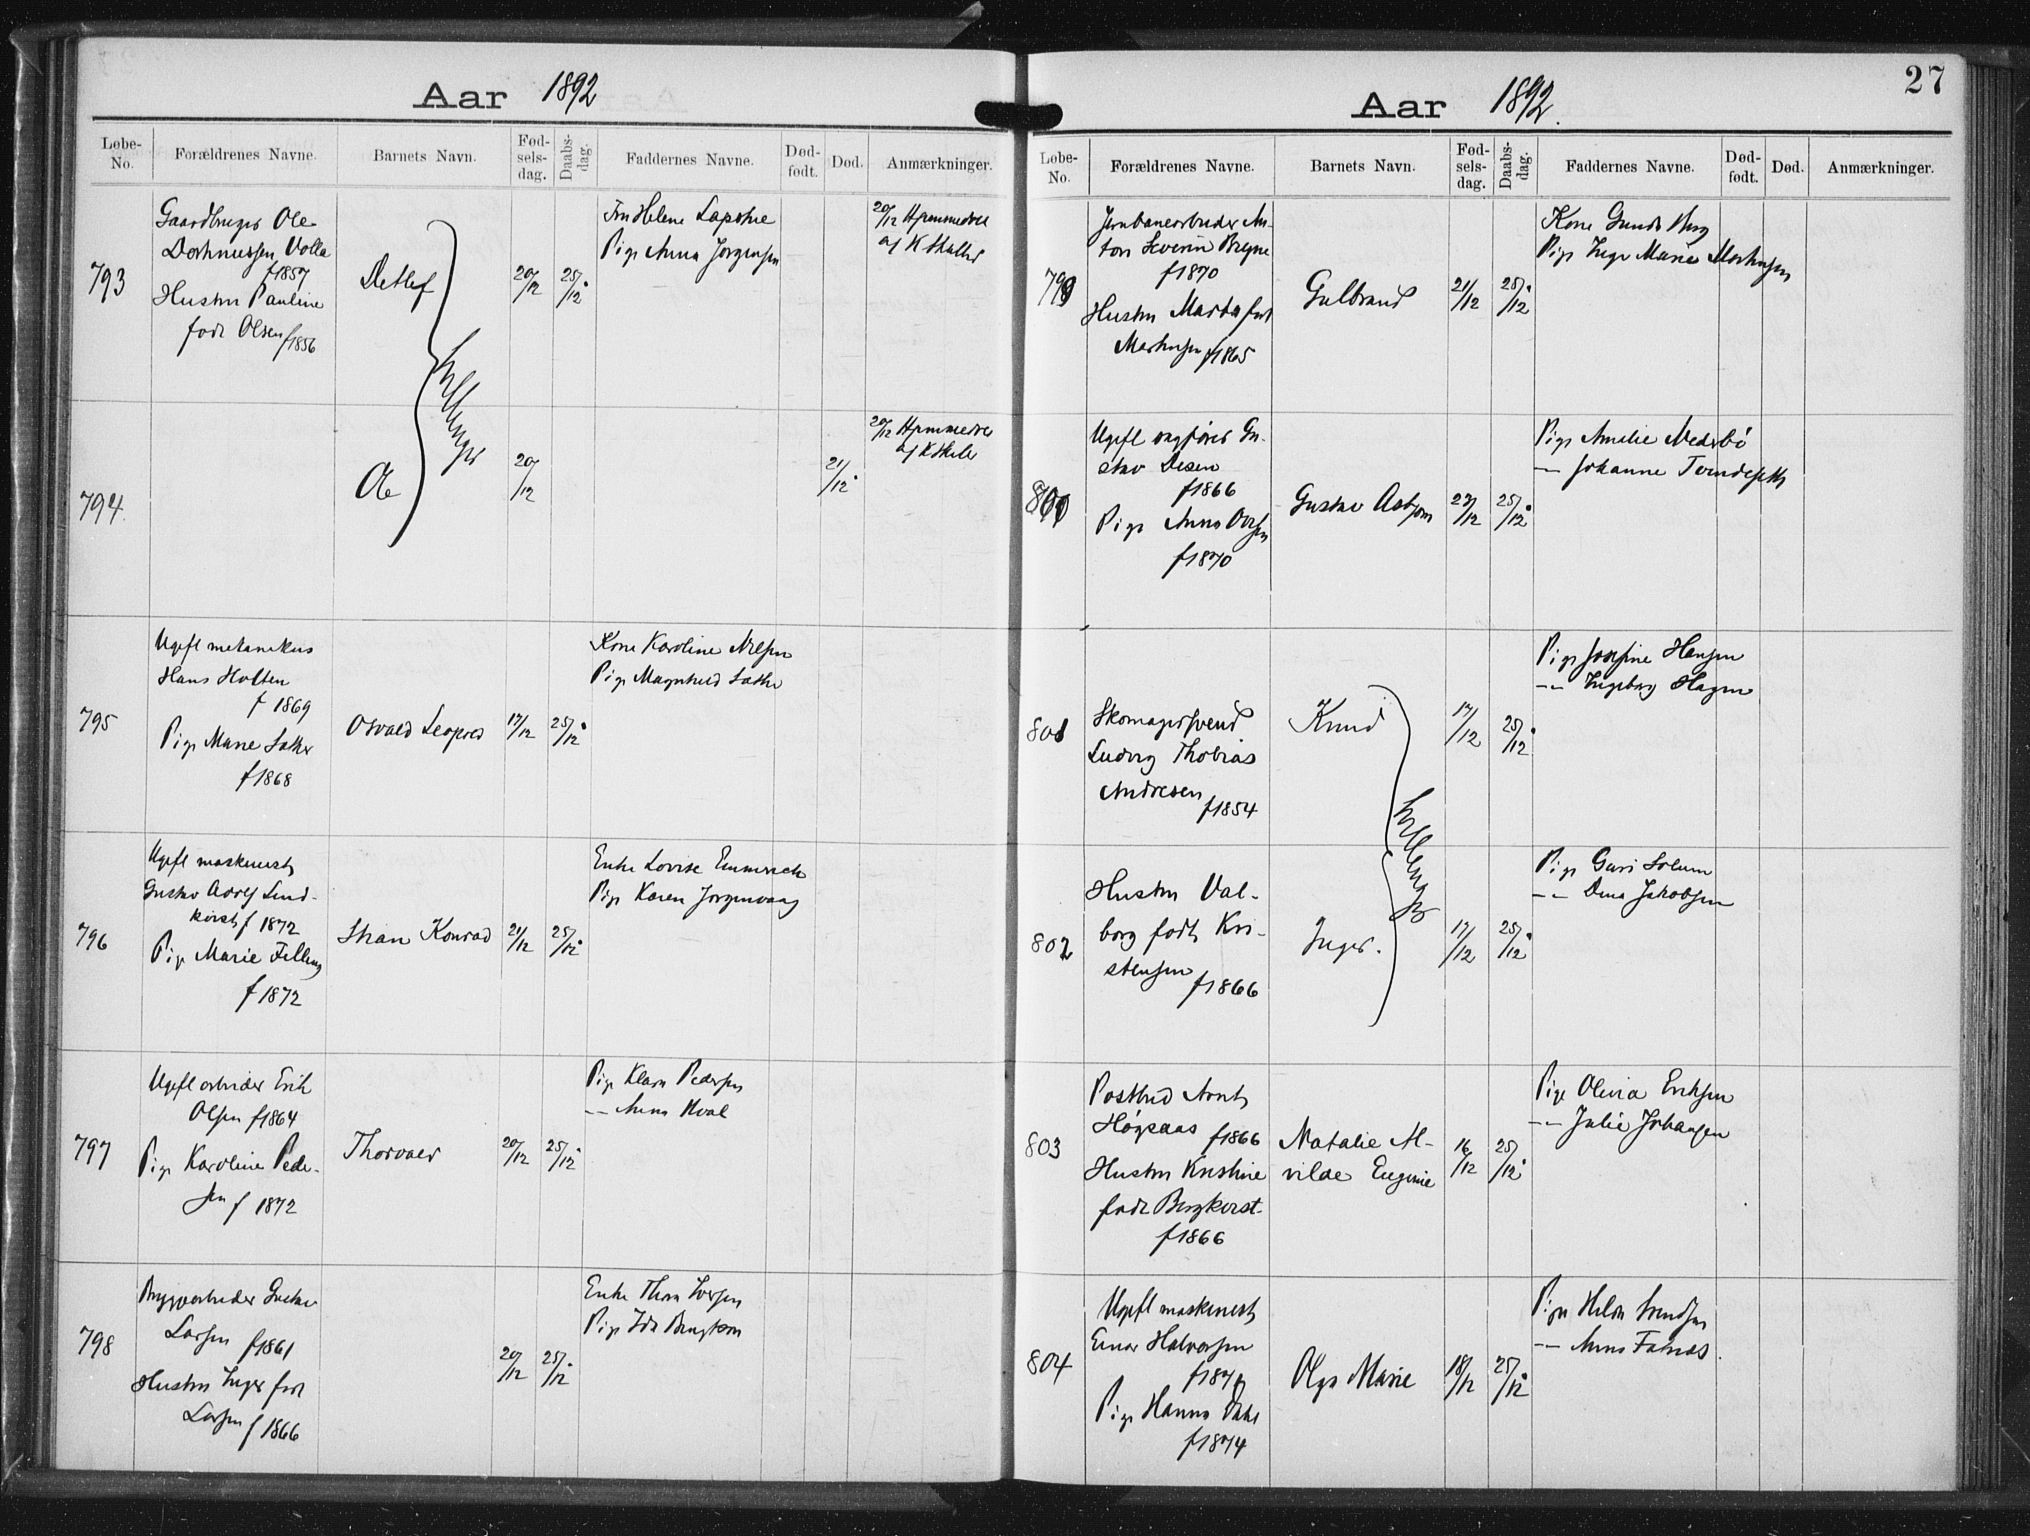 Aar 1892
Løbe-No. Forældrenes Navne. Barnets Navn. Fød-sels-dag. Daabs-dag. Faddernes Navne. Død-født. Død. Anmærkninger.
793
Gaardbruger Ole
Volla
f 1857
Hustru Pauline
født Olsen f 1856
Detlef
20/12
25/12
Fru Helene
Pige Anna Jørgensen
20/12 Hjemmedøbt
af K
Tvillinger
794
Ole
20/12
21/12
20/12 Hjemmedøbt
af K
795
Ugift mekanikus
Hans Holten
f 1869
Pige Marie Sæther
f 1868
Osvald Leopold
17/12
25/12
Kone Karoline Nilsen
Pige Magnhild Sæther
796
Ugift maskinist
Gustav Adolf Lind-
f 1872
Pige Marie Felling
f 1872
Johan Konrad
21/12
25/12
Enke Lovise
Pige Karen
797
Ugift arbeider Erik
Olsen f 1864
Pige Karoline Peder-
sen f 1872
Thorvald
20/12
25/12
Pige Klara Pedersen
-- Anna Hval
798
Bryggearbeider Gustav
Larsen f 1861
Hustru Inger født
Larsen f 1866
20/12
25/12
Enke Thora Iversen
Pige Ida Bengtson
Aar 1892.
27
Løbe-No. Forældrenes Navne. Barnets Navn. Fød-sels-dag. Daabs-dag. Faddernes Navne. Død-født. Død. Anmærkninger.
799
Jernbanearbeider An-
ton Severin
f 1870
Hustru Martha født
Martinsen f 1865
Gulbrand
21/12
25/12
Kone Berg
Pige Inga Marie Martinsen
800
Ugift vognfører Gu-
stav
f 1866
Pige Anna
f 1870
Gustav Asbjørn
22/12
25/12
Pige Amalie
-- Johanne
801
Skomagersvend
Ludvig Thobias
Andresen
f 1854
Knud
17/12
25/12
Pige Josefine Hansen
-- Ingeborg Hagen
Tvillinger
802
Hustru Val-
borg født Kri-
stensen
f 1866
Inger.
17/12
25/12
Pige Guri Solum
-- Dina Jakobsen
803
Postbud Arnt
Høgsaas f 1866
Hustru Kristine
født
f 1866
Natalie Al-
vilde Eugenie
16/12
25/12
Pige Olivia Eriksen
-- Julie Johansen
804
Ugift maskinist
Einar Halvorsen
Pige Hanna Dahl
f 1874
Olga Marie
18/12
25/12
Pige Hilda Svendsen
-- Anna